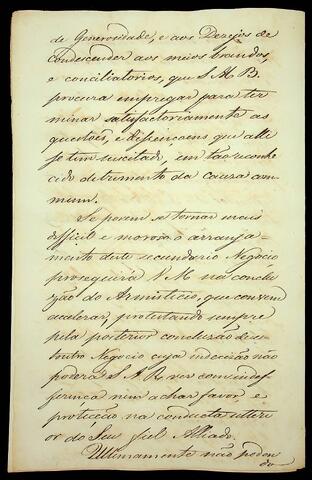 de Generosidade, e aos Dezejos de
condescender aos meios brandos,
e conciliatorios, que S A R
procura empregar para ter
minar satisfactoriamente as
questoês, e dispeiçoens que alli
se tem suscitado, em tao reconhe
cido detrimento da cauza com
mum.
Se porem se tornar mais
difficil e moroso o arranja
mento deste secundario Negocio
proseguirá V M na conclu
zão do Armisticio, que convem
accelerar, protestando sempre
pela posterior conclusão deste
outro Negocio cuja indecizão não
poderá S A R ver com indef
ferença nem achar favor, e
protecção na conducta ulteri
or do Seu fiel Alliado.
Ultimamente não poden
do